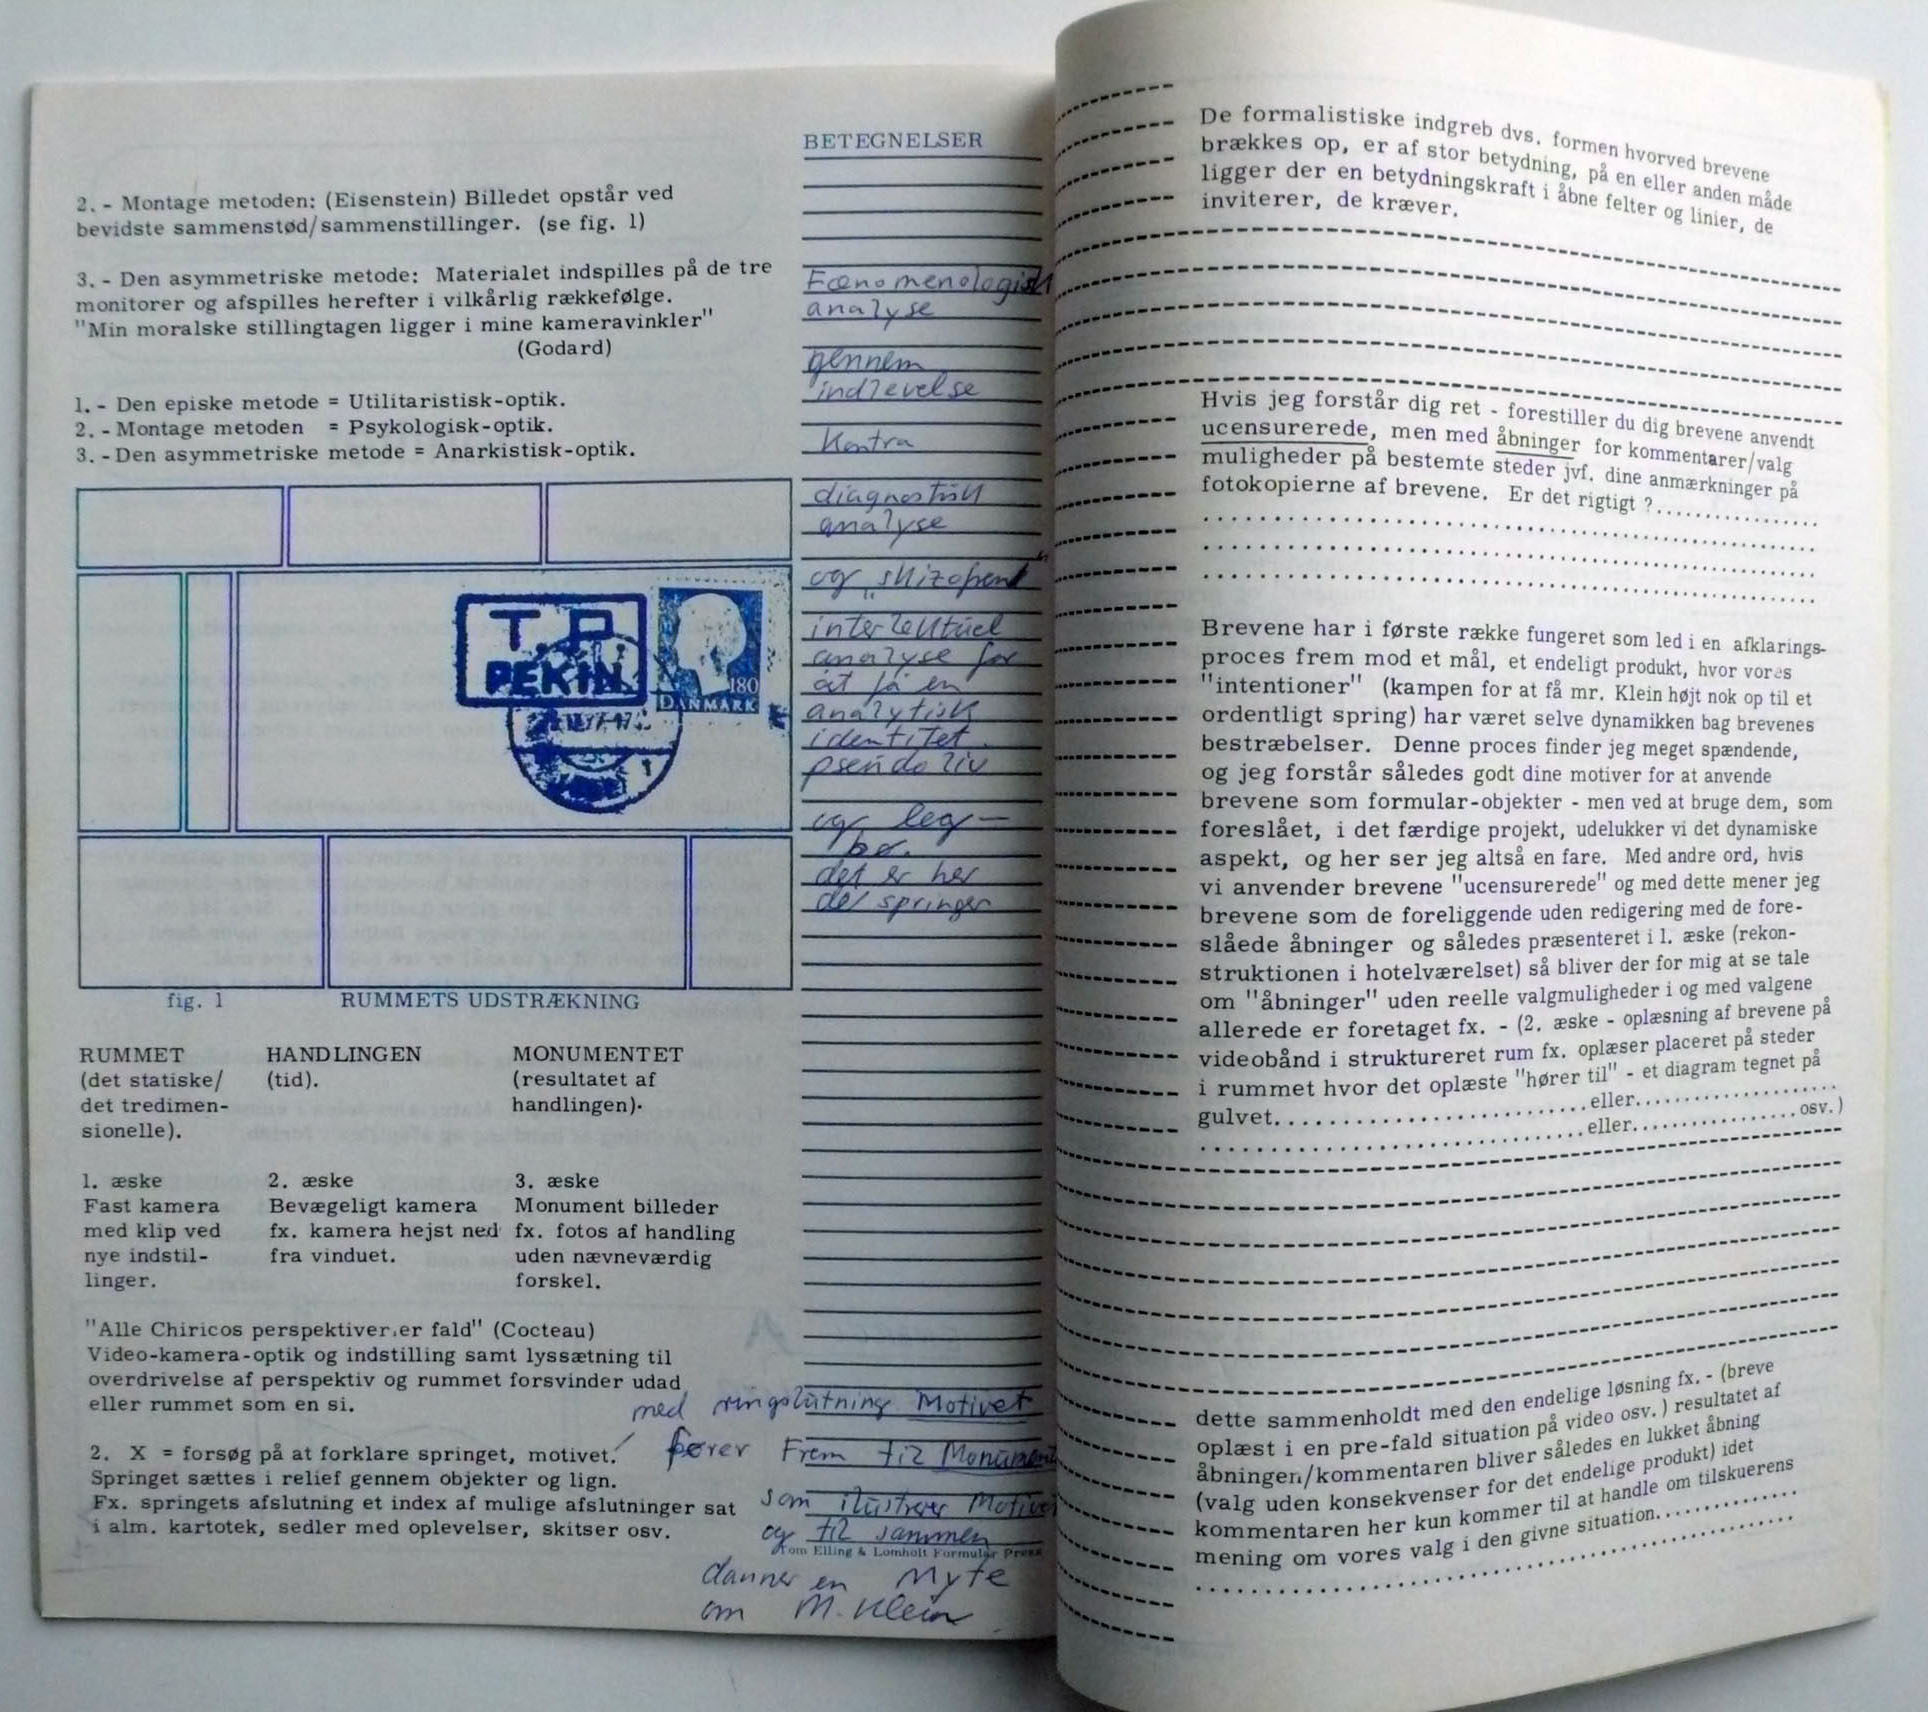 2. - Montage metoden: (Eisenstein) Billedet opstår ved
bevidste sammenstød/sammenstillinger. (se fig. 1)
3. - Den asymmetriske metode: Materialet indspilles på de tre
monitorer og afspilles herefter i vilkårlig rækkefølge.
"Min moralske stillingtagen ligger i mine kameravinkler"
(Godard)
1. - Den episke metode = Utilitaristisk-optik.
2. - Montage metoden = Psykologisk-optik.
3. - Den asymmetriske metode = Anarkistisk-optik.
T.P.
PEKIN
180
DANMARK
fig. 1 RUMMETS UDSTRÆKNING
RUMMET HANDLINGEN MONUMENTET
(det statiske/ (tid). (resultatet af
det tredimen- handlingen).
sionelle).
1. æske 2. æske 3. æske
Fast kamera Bevægeligt kamera Monument billeder
med klip ved fx. kamera hejst ned fx. fotos af handling
nye indstil- fra vinduet. uden nævneværdig
linger. forskel.
"Alle Chiricos perspektiver.er fald" (Cocteau)
Video-kamera-optik og indstilling samt lyssætning til
overdrivelse af perspektiv og rummet forsvinder udad
eller rummet som en si.
2. X = forsøg på at forklare springet, motivet.
Springet sættes i relief gennem objekter og lign.
Fx. springets afslutning et index af mulige afslutninger sat
i alm. kartotek, sedler med oplevelser, skitser osv.
BETEGNELSER
Fænomenologisk
analyse
gennem
indlevelse
kontra
diagnostisk
analyse
og "skizofren"
intelektuel
analyse for
at få en
analytisk
identitet.
pseudoliv
og leg-
det er her
de springer
med ringslutning Motivet
fører Frem til Monument
som ilustrerer Motivet
og til sammen
Tom Elling & Lomholt Formular Press
danner en Myte
om M. Klein
De formalistiske indgreb dvs. formen hvorved brevene
brækkes op, er af stor betydning, på en eller anden måde
ligger der en betydningskraft i åbne felter og linier, de
inviterer, de kræver.
Hvis jeg forstår dig ret - forestiller du dig brevene anvendt
ucensurerede, men med åbninger for kommentarer/valg
muligheder på bestemte steder jvf. dine anmærkninger på
fotokopierne af brevene. Er det rigtigt ?................
Brevene har i første række fungeret som led i en afklarings-
proces frem mod et mål, et endeligt produkt, hvor vores
"intentioner" (kampen for at få mr. Klein højt nok op til et
ordentligt spring) har været selve dynamikken bag brevenes
bestræbelser. Denne proces finder jeg meget spændende,
og jeg forstår således godt dine motiver for at anvende
brevene som formular-objekter - men ved at bruge dem, som
foreslået, i det færdige projekt, udelukker vi det dynamiske
aspekt, og her ser jeg altså en fare. Med andre ord, hvis
vi anvender brevene "ucensurerede" og med dette mener jeg
brevene som de foreliggende uden redigering med de fore-
slåede åbninger og således præsenteret i 1. æske (rekon-
struktionen i hotelværelset) så bliver der for mig at se tale
om "åbninger" uden reelle valgmuligheder i og med valgene
allerede er foretaget fx. - (2. æske - oplæsning af brevene på
videobånd i struktureret rum fx. oplæser placeret på steder
i rummet hvor det oplæste "hører til" - et diagram tegnet på
gulvet..............................eller...................
....................................eller...............osv.)
dette sammenholdt med den endelige løsning fx. - (breve
oplæst i en pre-fald situation på video osv.) resultatet af
åbningen/kommentaren bliver således en lukket åbning
(valg uden konsekvenser for det endelige produkt) idet
kommentaren her kun kommer til at handle om tilskuerens
mening om vores valg i den givne situation...............